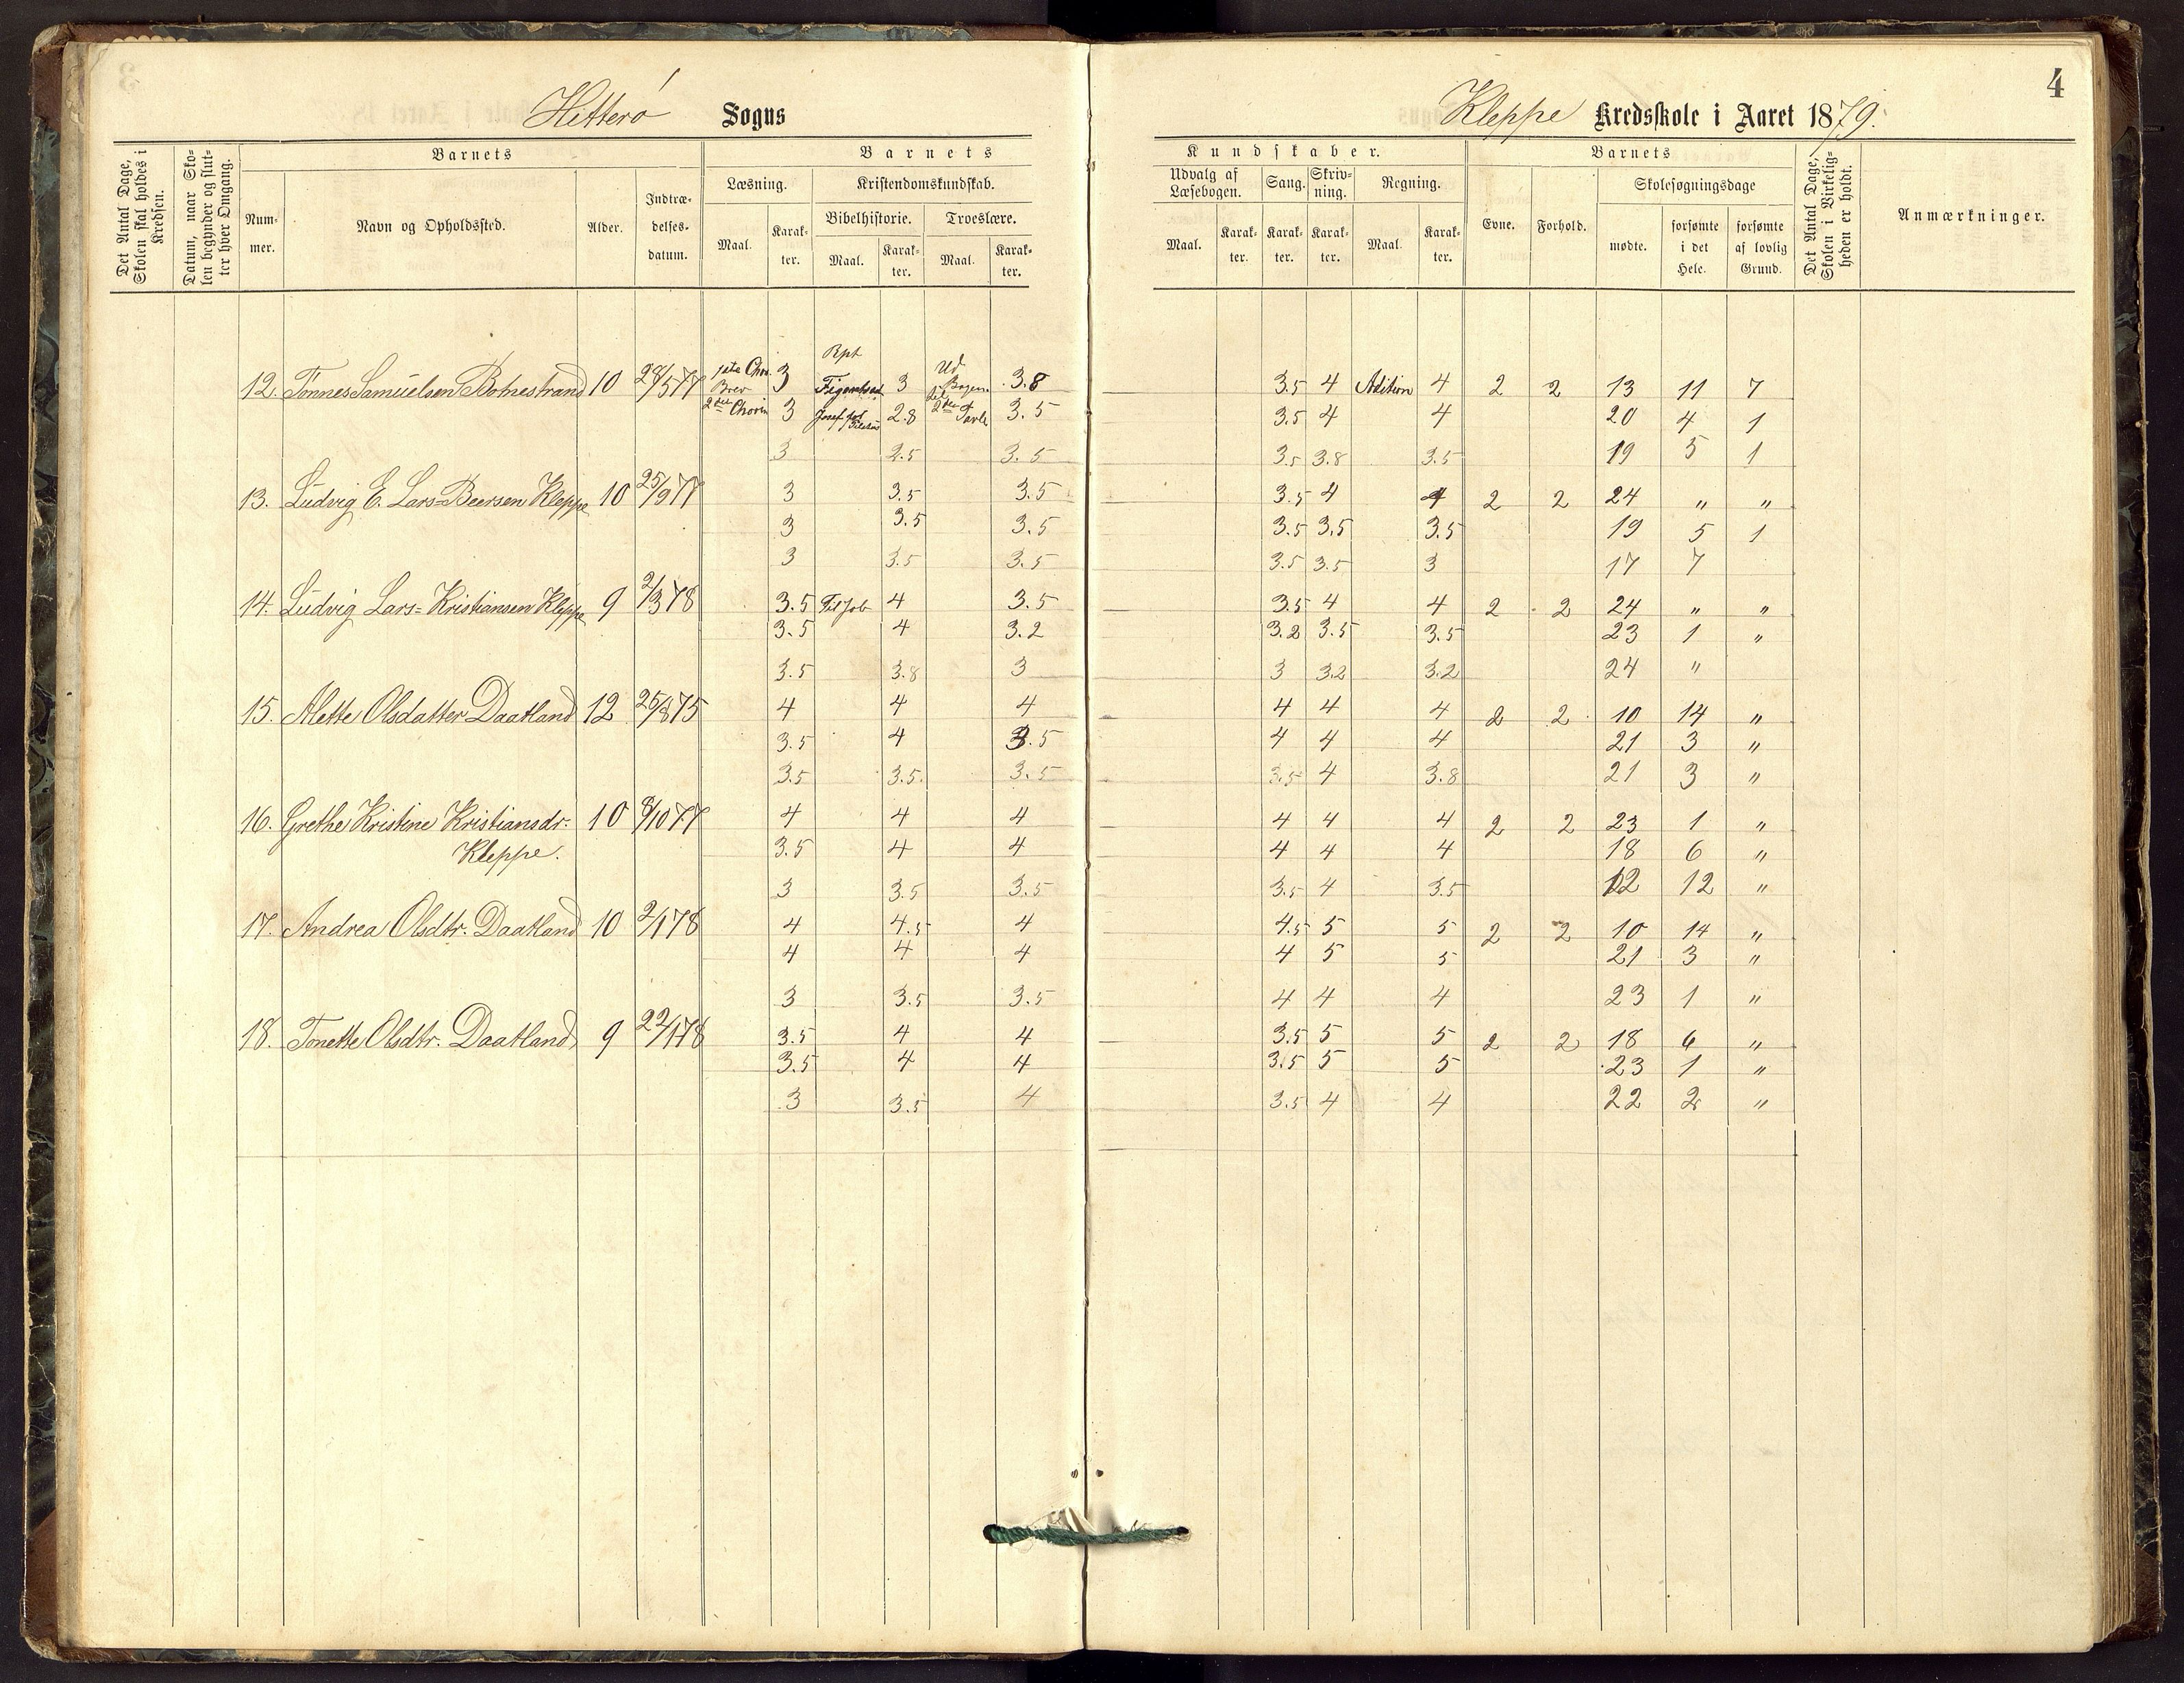 4
Hitterø Sogns
Kleppe Kredsskole i Aaret 1879.
Det Antal Dage, Skolen skal holdes i Kredsen.
Datum, naar Skolen begynder og slutter hver Omgang.
Barnets
Nummer.
Navn og Opholdssted.
Alder.
Indtrædelsesdatum.
Barnets
Læsning.
Maal.
Karakter.
Kristendomskundskab.
Bibelhistorie.
Maal.
Karakter.
Troeslære.
Maal.
Karakter.
Kundskaber.
Udvalg af Læsebogen.
Maal.
Karakter.
Sang.
Karakter.
Skrivning.
Karakter.
Regning.
Maal.
Karakter.
Barnets
Evne.
Forhold.
Skolesøgningsdage
mødte.
forsømte i det Hele.
forsømte af lovlig Grund.
Det Antal Dage, Skolen i Virkeligheden er holdt.
Anmærkninger.
12. Tønnes Samuelsen Botnestrand 10 28/5 77 3 3 3.8 3.5 4 Adition 4 2 2 13 11 7
3 2.8 3.5 3.5 4 4 20 4 1
3 2.5 3.5 3.5 3.8 3.5 19 5 1
13. Ludvig E. Lars=Beersen Kleppe 10 25/9 77 3 3.5 3.5 3.5 4 4 2 2 24 " "
3 3.5 3.5 3.5 3.5 3.5 19 5 1
3 3.5 3.5 3.5 3.5 3 17 7
14. Ludvig Lars=Kristiansen Kleppe 9 2/3 78 3.5 Til Job 4 3.5 3.5 4 4 2 2 24 " "
3.5 4 3.2 3.2 3.5 3.5 23 1 "
3.5 3.8 3 3 3.2 3.2 24 "
15. Alette Olsdatter Daatland 12 25/8 75 4 4 4 4 4 4 2 2 10 14 "
3.5 4 3.5 4 4 4 21 3 "
3.5 3.5 3.5 3.5 4 3.8 21 3 "
16. Grethe Kristine Kristiansdr. 10 8/10 77 4 4 4 4 4 4 2 2 23 1 "
Kleppe. 3.5 4 4 4 4 4 18 6 "
3 3.5 3.5 3.5 4 3.5 12 12 "
17. Andrea Olsdtr. Daatland 10 2/1 78 4 4.5 4 4.5 5 5 2 2 10 14 "
4 4 4 4 5 5 21 3 "
3 3.5 3.5 4 4 4 23 1 "
18. Tonette Olsdtr. Daatland 9 22/1 78 3.5 4 4 3.5 5 5 2 2 18 6 "
3.5 4 4 3.5 5 5 23 1 "
3 3.5 4 3.5 4 4 22 2 "